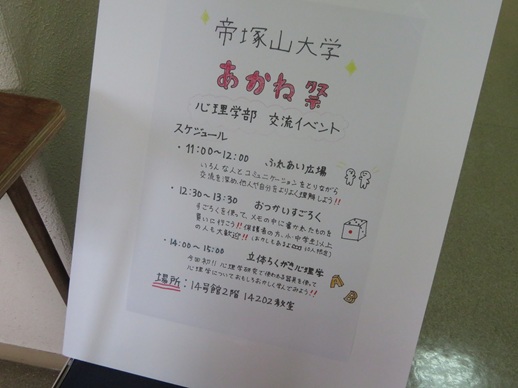 帝塚山大学
あかね祭
心理学部 交流イベント
スケジュール
・11:00〜12:00 ふれあい広場
いろんな人とコミュニケーションをとりながら
交流を深め、他人や自分をよりよく理解しよう!!
・12:30〜13:30 おつかいすごろく
すごろくを使って、メモの中に書かれたものを
買いに行こう!!保護者の方、小・中学生以上
の人も大歓迎!!
・14:00〜15:00 立体らくがき心理学
今回初!!心理学研究で使われる器具を使って
心理学についておもしろおかしく学んでみよう!!
場所:14号館2階 14202教室